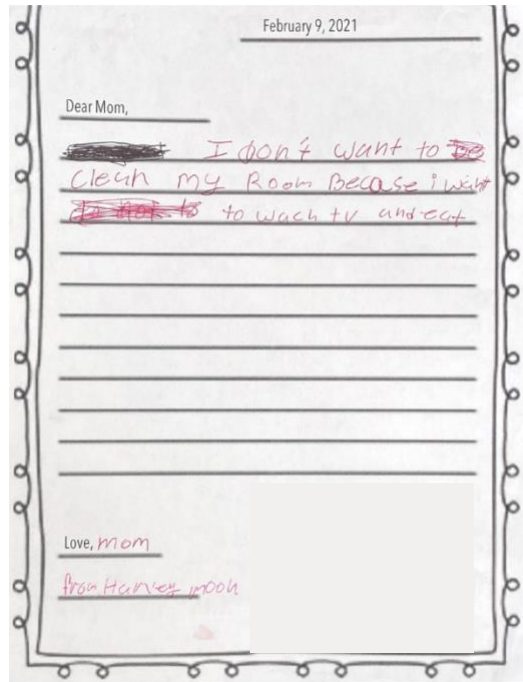 February 9, 2021
Dear Mom,
I don't want to
Clean my Room Becase i want
to wach tv and eat
Love, mom
from Harvey moon